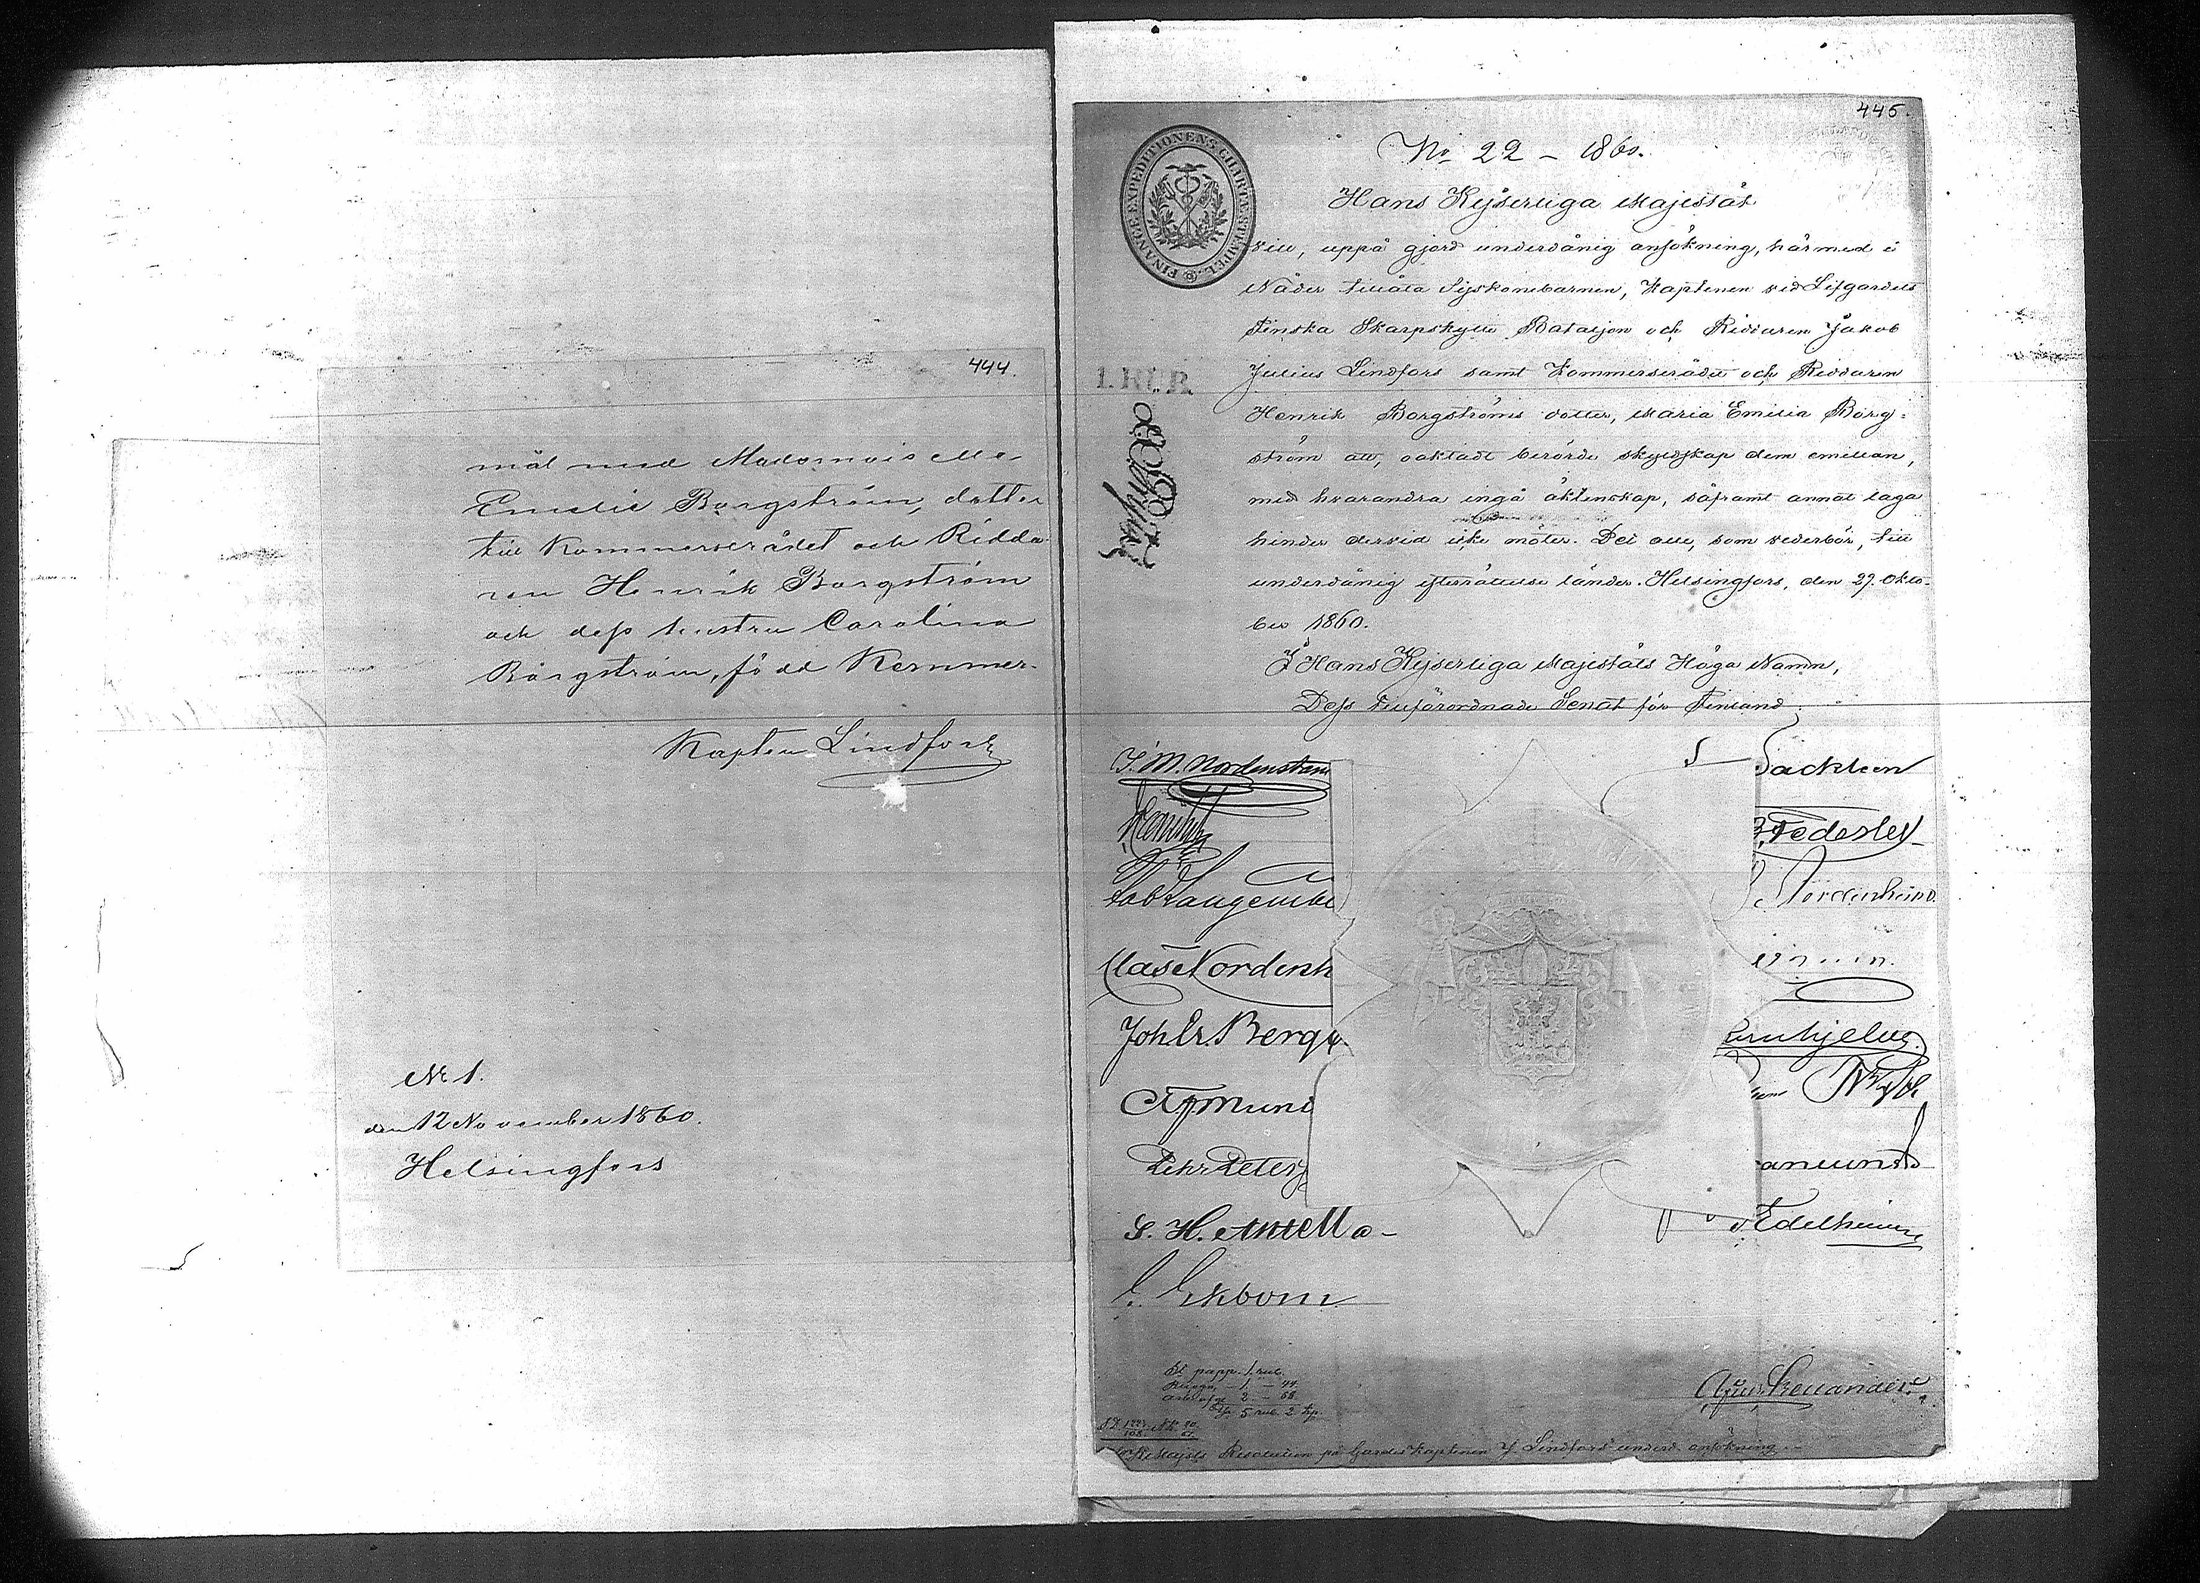 444.
mål med Mademoiselle
Emelie Borgström, dotter
till Kommerserådet och Ridda-
ren Henrik Borgström
och dess hustru Carolina
Borgström, född Kemmer-
Kapten Lindfors
No 1.
den 12 November 1860.
Helsingfors
445.
No 22 – 1860.
FINANCE EXPEDITIONENS CHARTÆ STEMPEL
Hans Kejserliga Majestät
vill, uppå gjord underdånig ansökning, härmed i
Nåder tillåta Syskonebarnen, Kaptenen vid Lifgardets
Finska Skarpskytte Bataljon och Riddaren Jakob
1. RUB.
Julius Lindfors samt Kommerserådet och Riddaren
Henrik Borgströms dotter, Maria Emilia Borg-
ström att, oaktadt berörde skyldskap dem emellan,
med hvarandra ingå äktenskap, såframt annat laga
hinder dervid icke möter. Det alle, som vederbör, till
underdånig efterrättelse länder. Helsingfors, den 29. Okto-
ber 1860.
I Hans Kejserliga Majestäts Höga Namn,
Dess Tillförordnade Senat för Finland
J. M. Nordenstam
Sackleen
Federley
Nordenheim
Clas Nordenh
Joh. Er. Bergb
Pehr Peters
S. H. Antell
Edelheim
C. Ekbom
Kl. papp. 1. rub.
5 rub. 2 kop.
Kej Majsts Resolution på Gardes Kaptenen J. Lindfors underd. ansökning.